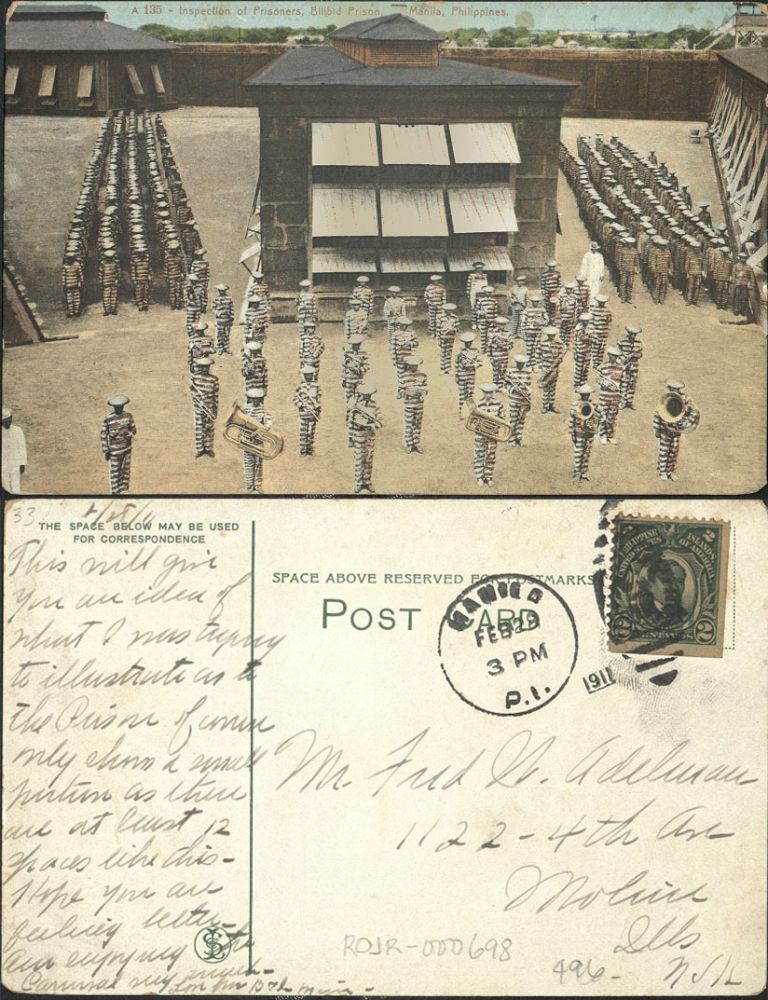 A 135 - Inspection of Prisoners, Bilibid Prison, Manila, Philippines.
33
2/28/11
THE SPACE BELOW MAY BE USED
FOR CORRESPONDENCE
This will give
you an idea of
what I was trying
to illustrate as to
the Prison of course
only shows a small
portion as there
are at least 12
spaces like this -
Hope you are
feeling better -
Am enjoying the
Carnival very much -
SPACE ABOVE RESERVED FOR POSTMARKS
POST CARD
MANILA
FEB 28
3 PM
P.I.
1911
PHILIPPINE ISLANDS
UNITED STATES OF AMERICA
2 CENTAVOS 2
Mr. Fred W. Adelman
1122 - 4th Ave
Moline
Ills
ROJR-000698
496-